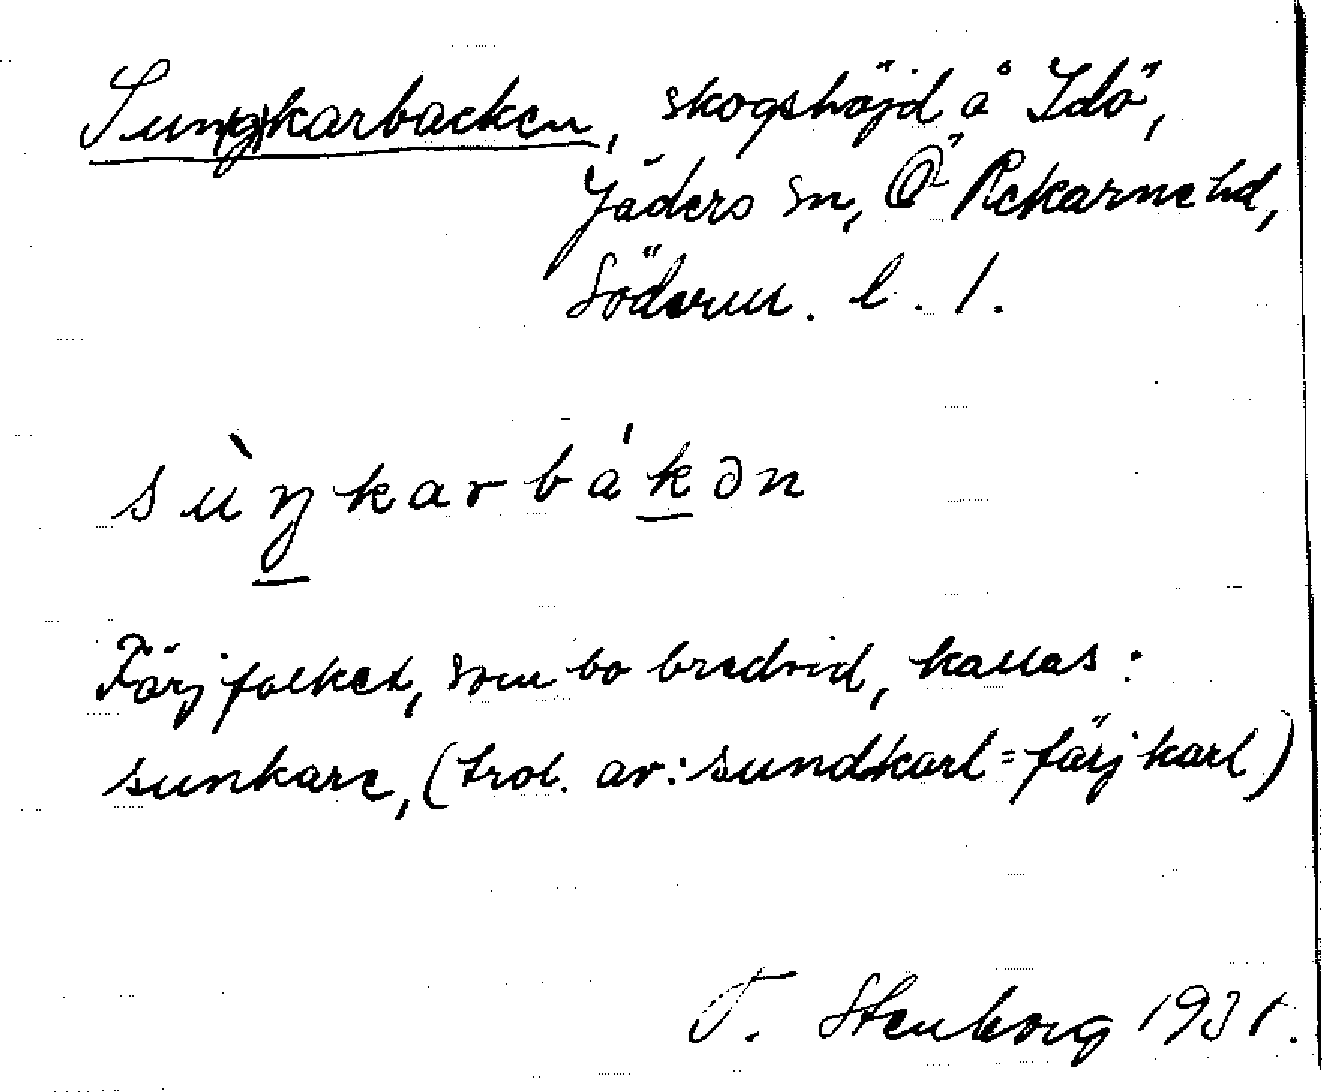 Sun(g)karbacken, skogshöjd å Idö,
Jäders sn, Ö Rekarne hd,
Söderm. l. 1.
sùŋkarbákən
Färjfolket, som bo bredvid, kallas:
sunkare, (trol. av: sundkarl = färjkarl)
T. Stenborg 1931.